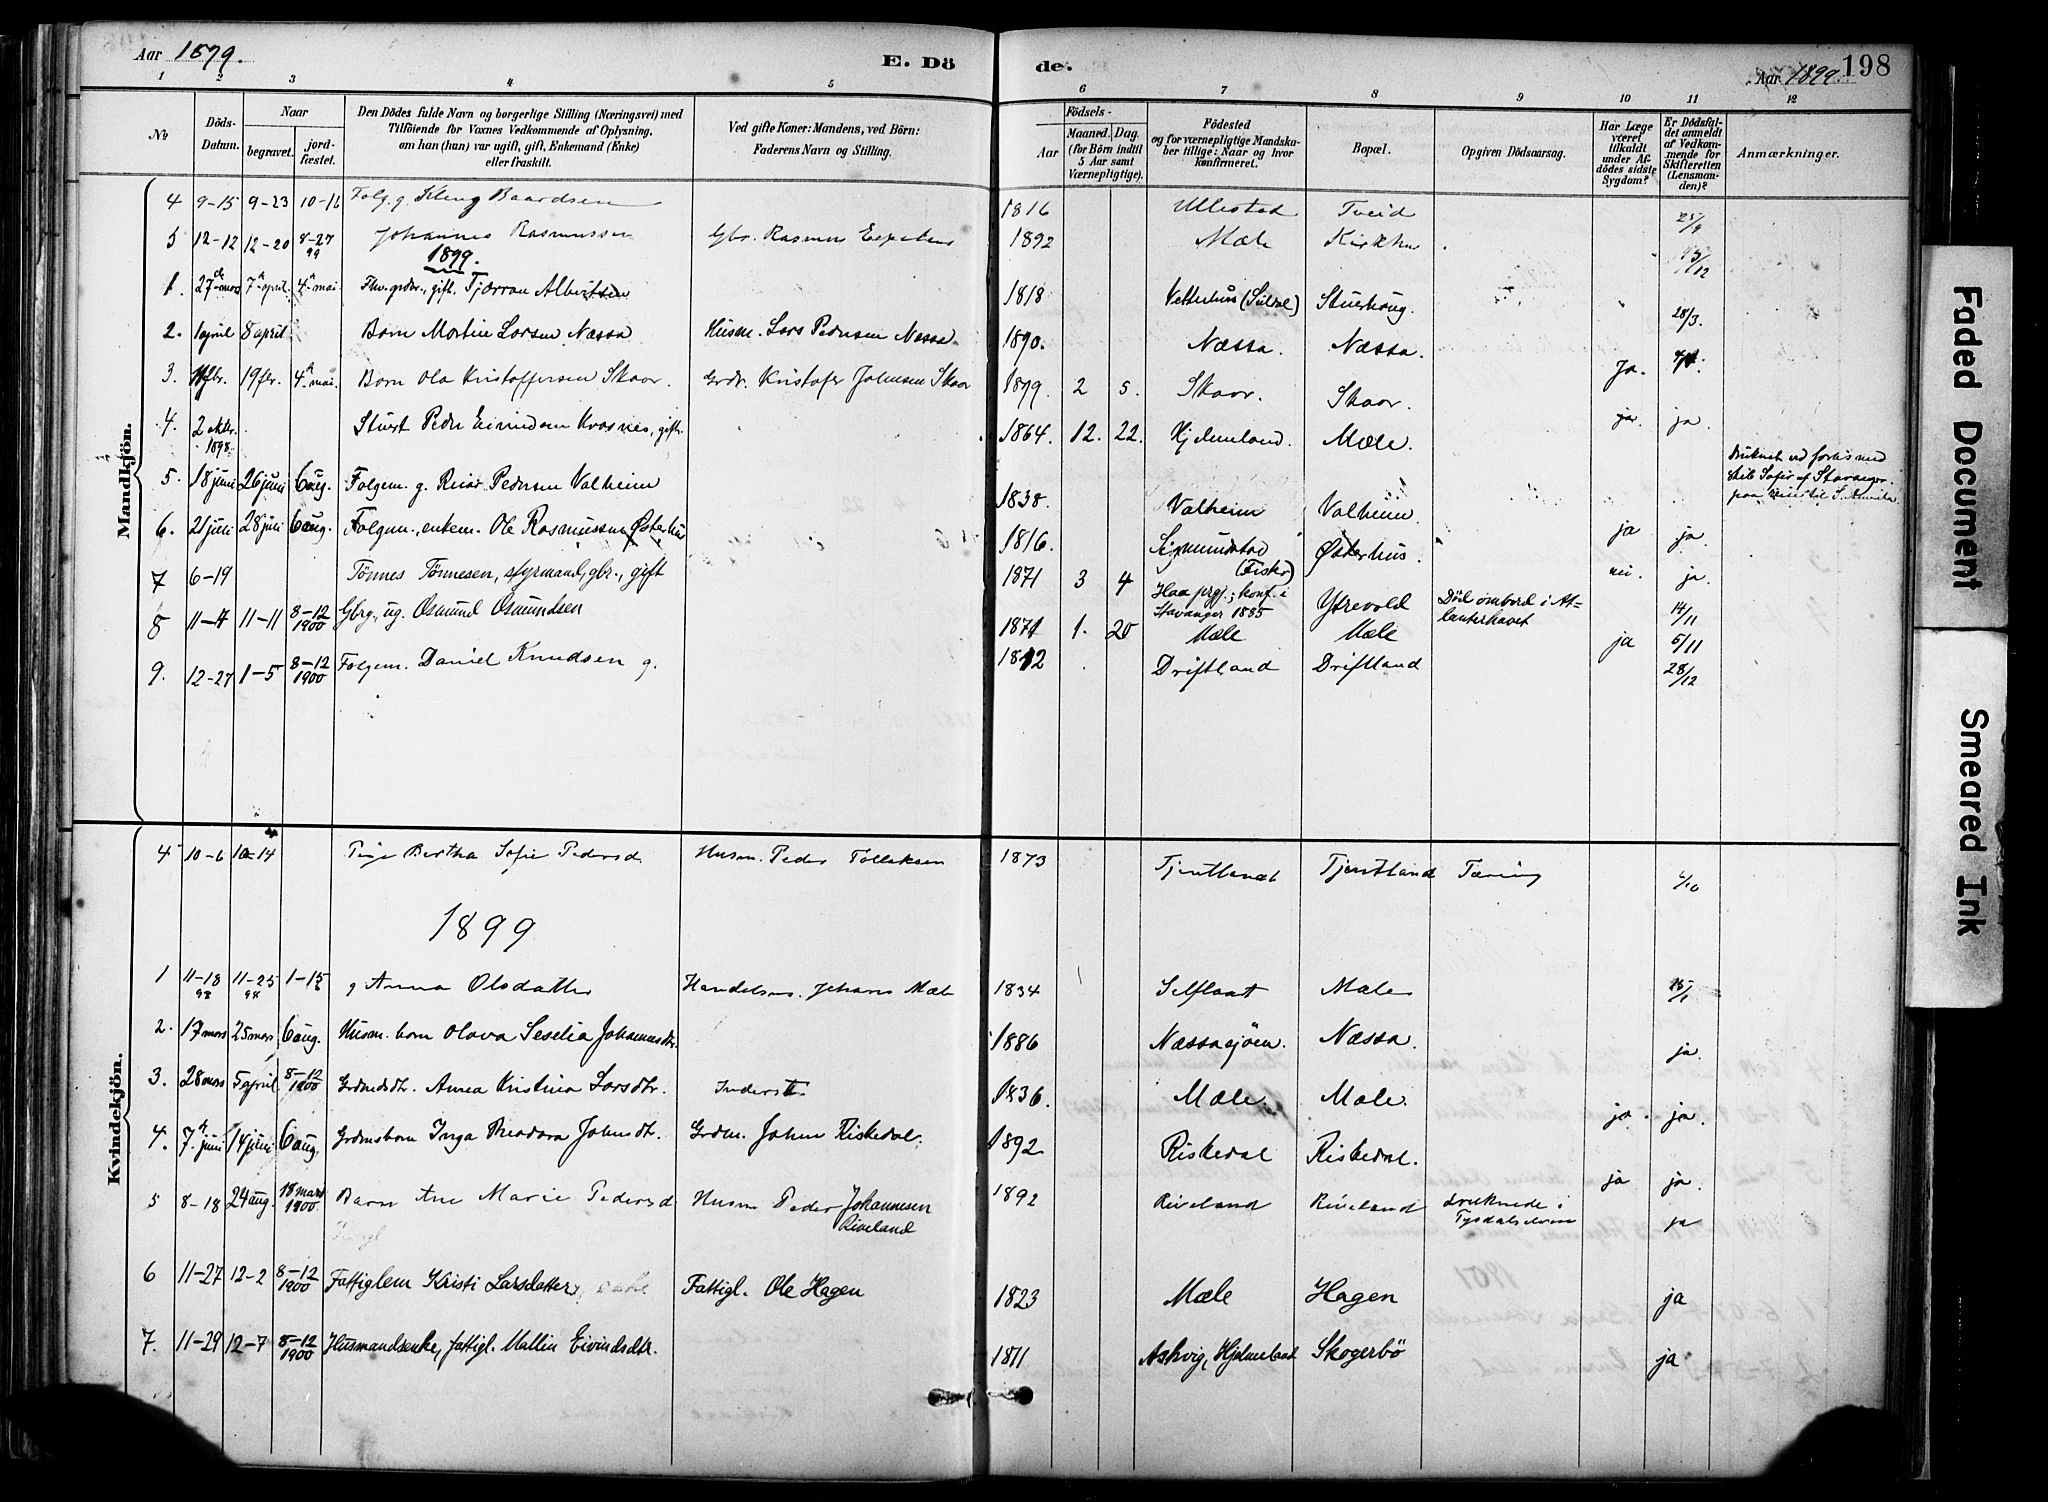 Aar 1899.
E. Dö
de.
Aar 1899.
198
1 2 3 4 5 6 7 8 9 10 11 12
No
Döds-Datum.
Naar
begravet.
jord-fæstet.
Den Dödes fulde Navn og borgerlige Stilling (Næringsvei) med
Tilföiende for Voxnes Vedkommende af Oplysning,
om han (hun) var ugift, gift, Enkemand (Enke)
eller fraskilt.
Ved gifte Koner: Mandens, ved Börn:
Faderens Navn og Stilling.
Födsels-
Aar
Maaned. Dag.
(for Börn indtil
5 Aar samt
Værnepligtige).
Födested
og for værnepligtige Mandska-
ber tillige: Naar og hvor
konfirmeret.
Bopæl.
Opgiven Dödsaarsag.
Har Læge
været
tilkaldt
under Af-
dödes sidste
Sygdom?
Er Dödsfal-
det anmeldt
af Vedkom-
mende for
Skifteretten
(Lensman-
den)?
Anmærkninger.
Mandkjön.
4 9-15 9-23 10-16 Folg. g. Baardsen 1816 Ullestad Tveid 25/9
5 12-12 12-20 8-27 99 Johannes Rasmussen Gbr. Rasmus 1892 Mæle
1899.
1. 27de mars 7 april 4 mai gift. Tjærran Albertsen 1818 28/3.
2. 1 april 8 april Barn Martin Larsen Næssa Husm. Lars Pedersen Næssa 1890. Næssa. Næssa.
3. 19 fbr. 4 mai. Barn Ola Kristoffersen Skaar. Grdr. Kristofer Johnsen Skaar 1899. 2 5. Skaar. Skaar. Ja.
4. 2 oktbr. 1898. Peder Eivindsen gift. 1864. 12. 22. Hjelmeland. Mæle. ja. ja.
5. 18 juni 26 juni 6 aug. Folgem. g. Pedersen Valheim 1838. Valheim Valheim.
6. 21 juli 28 juli 6 aug. Folgem. enkem. Ole Rasmussen Østerhus 1816. Sigmundstad (Fister) Østerhus. ja ja.
7 6-19 Tönnes Tönnesen, styrmand, gbr., gift 1871 3 4 Haa prgj.; konf. i Stavanger 1885 Ytrevold Död ombord i At-lanterhavet nei. ja. 14/11
8 11-4 11-11 8-12 1900 Gbrg., ug. Osmund Osmundsen 1871 1. 20 Mæle Mæle ja 5/11
9. 12-27 1-5 8-12 1900 Folgem. Daniel Knudsen g. 1812 Driftland Driftland 28/12
Kvindekjön.
4 10-6 10-14 Pige Bertha Sofie Pedersd Husm. Peder Tolleksen 1873 Tjentland Tjentland Tæring
1899
1 11-18 98 11-25 98 1-15 g Anna Olsdatter Johans Mæle 1834 Mæle
2. 17 mars 25 mars 6 aug. Husm. barn Olava Seselia Johannesdtr. 1886 Næssasjöen. Næssa. ja.
3. 28 mars 5 april 8-12 1900 Anna Kristina Larsdtr. Inderst 1836. Mæle. Mæle. ja. ja.
4. 7 juni 14 juni 6 aug. Grdmsbarn Inga Theodora Johnsdtr. Grdm. John Riskedal. 1892. Riskedal Riskedal. ja ja.
5 8-18 24 aug. 18 mars 1900. Barn Ane Marie Pedersd Husm Peder Johannesen Riveland 1892 Riveland Riveland druknede i ja
6 11-27 12-2 8-12 1900 Fattiglem Kristi Larsdatter, Fattigl. Ole Hagen 1823 Mæle Hagen ja
7. 11-29 12-7 8-12 1900 Husmandsenke, fattigl. Mallin Eivindsdtr. 1811 Askvig, Hjelmeland Skogerbö ja
Faded Document
Smeared Ink